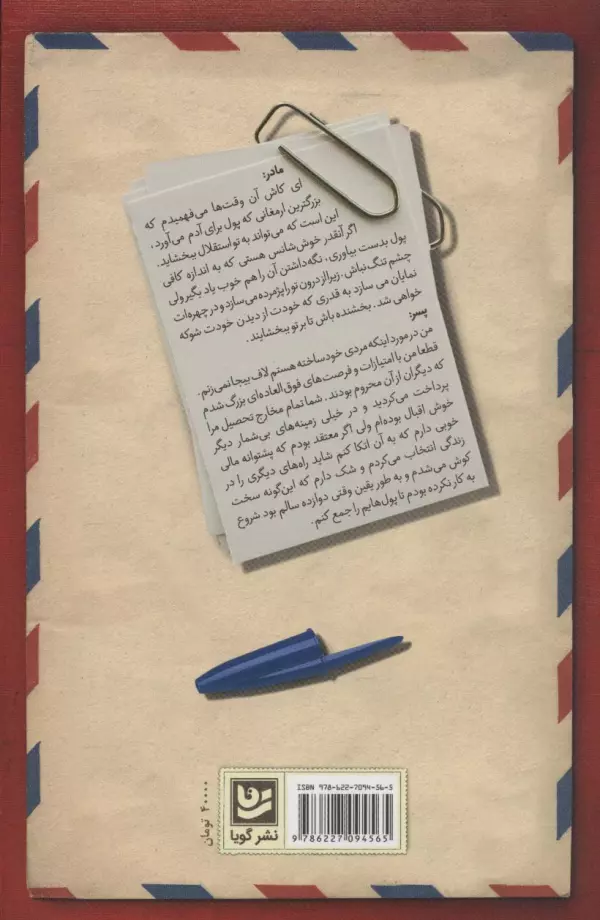 مادر:
ای کاش آن وقت‌ها می‌فهمیدم که
بزرگترین ارمغانی که پول برای آدم می‌آورد،
این است که می‌تواند به تو استقلال ببخشاید.
اگر آنقدر خوش‌شانس هستی که به اندازه کافی
پول بدست بیاوری، نگه‌داشتن آن را هم خوب یاد بگیر ولی
چشم تنگ نباش. زیرا از درون تو را پژمرده می‌سازد و در چهره‌ات
نمایان می سازد به قدری که خودت از دیدن خودت شوکه
خواهی شد. بخشنده باش تا بر تو ببخشایند.
پسر:
من در مورد اینکه مردی خودساخته هستم لاف بیجا نمی‌زنم.
قطعا من با امتیازات و فرصت‌های فوق‌العاده‌ای بزرگ شدم
که دیگران از آن محروم بودند. شما تمام مخارج تحصیل مرا
پرداخت می‌کردید و در خیلی زمینه‌های بی‌شمار دیگر
خوش اقبال بوده‌ام ولی اگر معتقد بودم که پشتوانه مالی
خوبی دارم که به آن اتکا کنم شاید راه‌های دیگری را در
زندگی انتخاب می‌کردم و شک دارم که این‌گونه سخت
کوش می‌شدم و به طور یقین وقتی دوازده سالم بود شروع
به کار نکرده بودم تا پول‌هایم را جمع کنم.
۴۰۰۰۰ تومان
نشر گویا
ISBN 978-622-7094-56-5
9 786227 094565